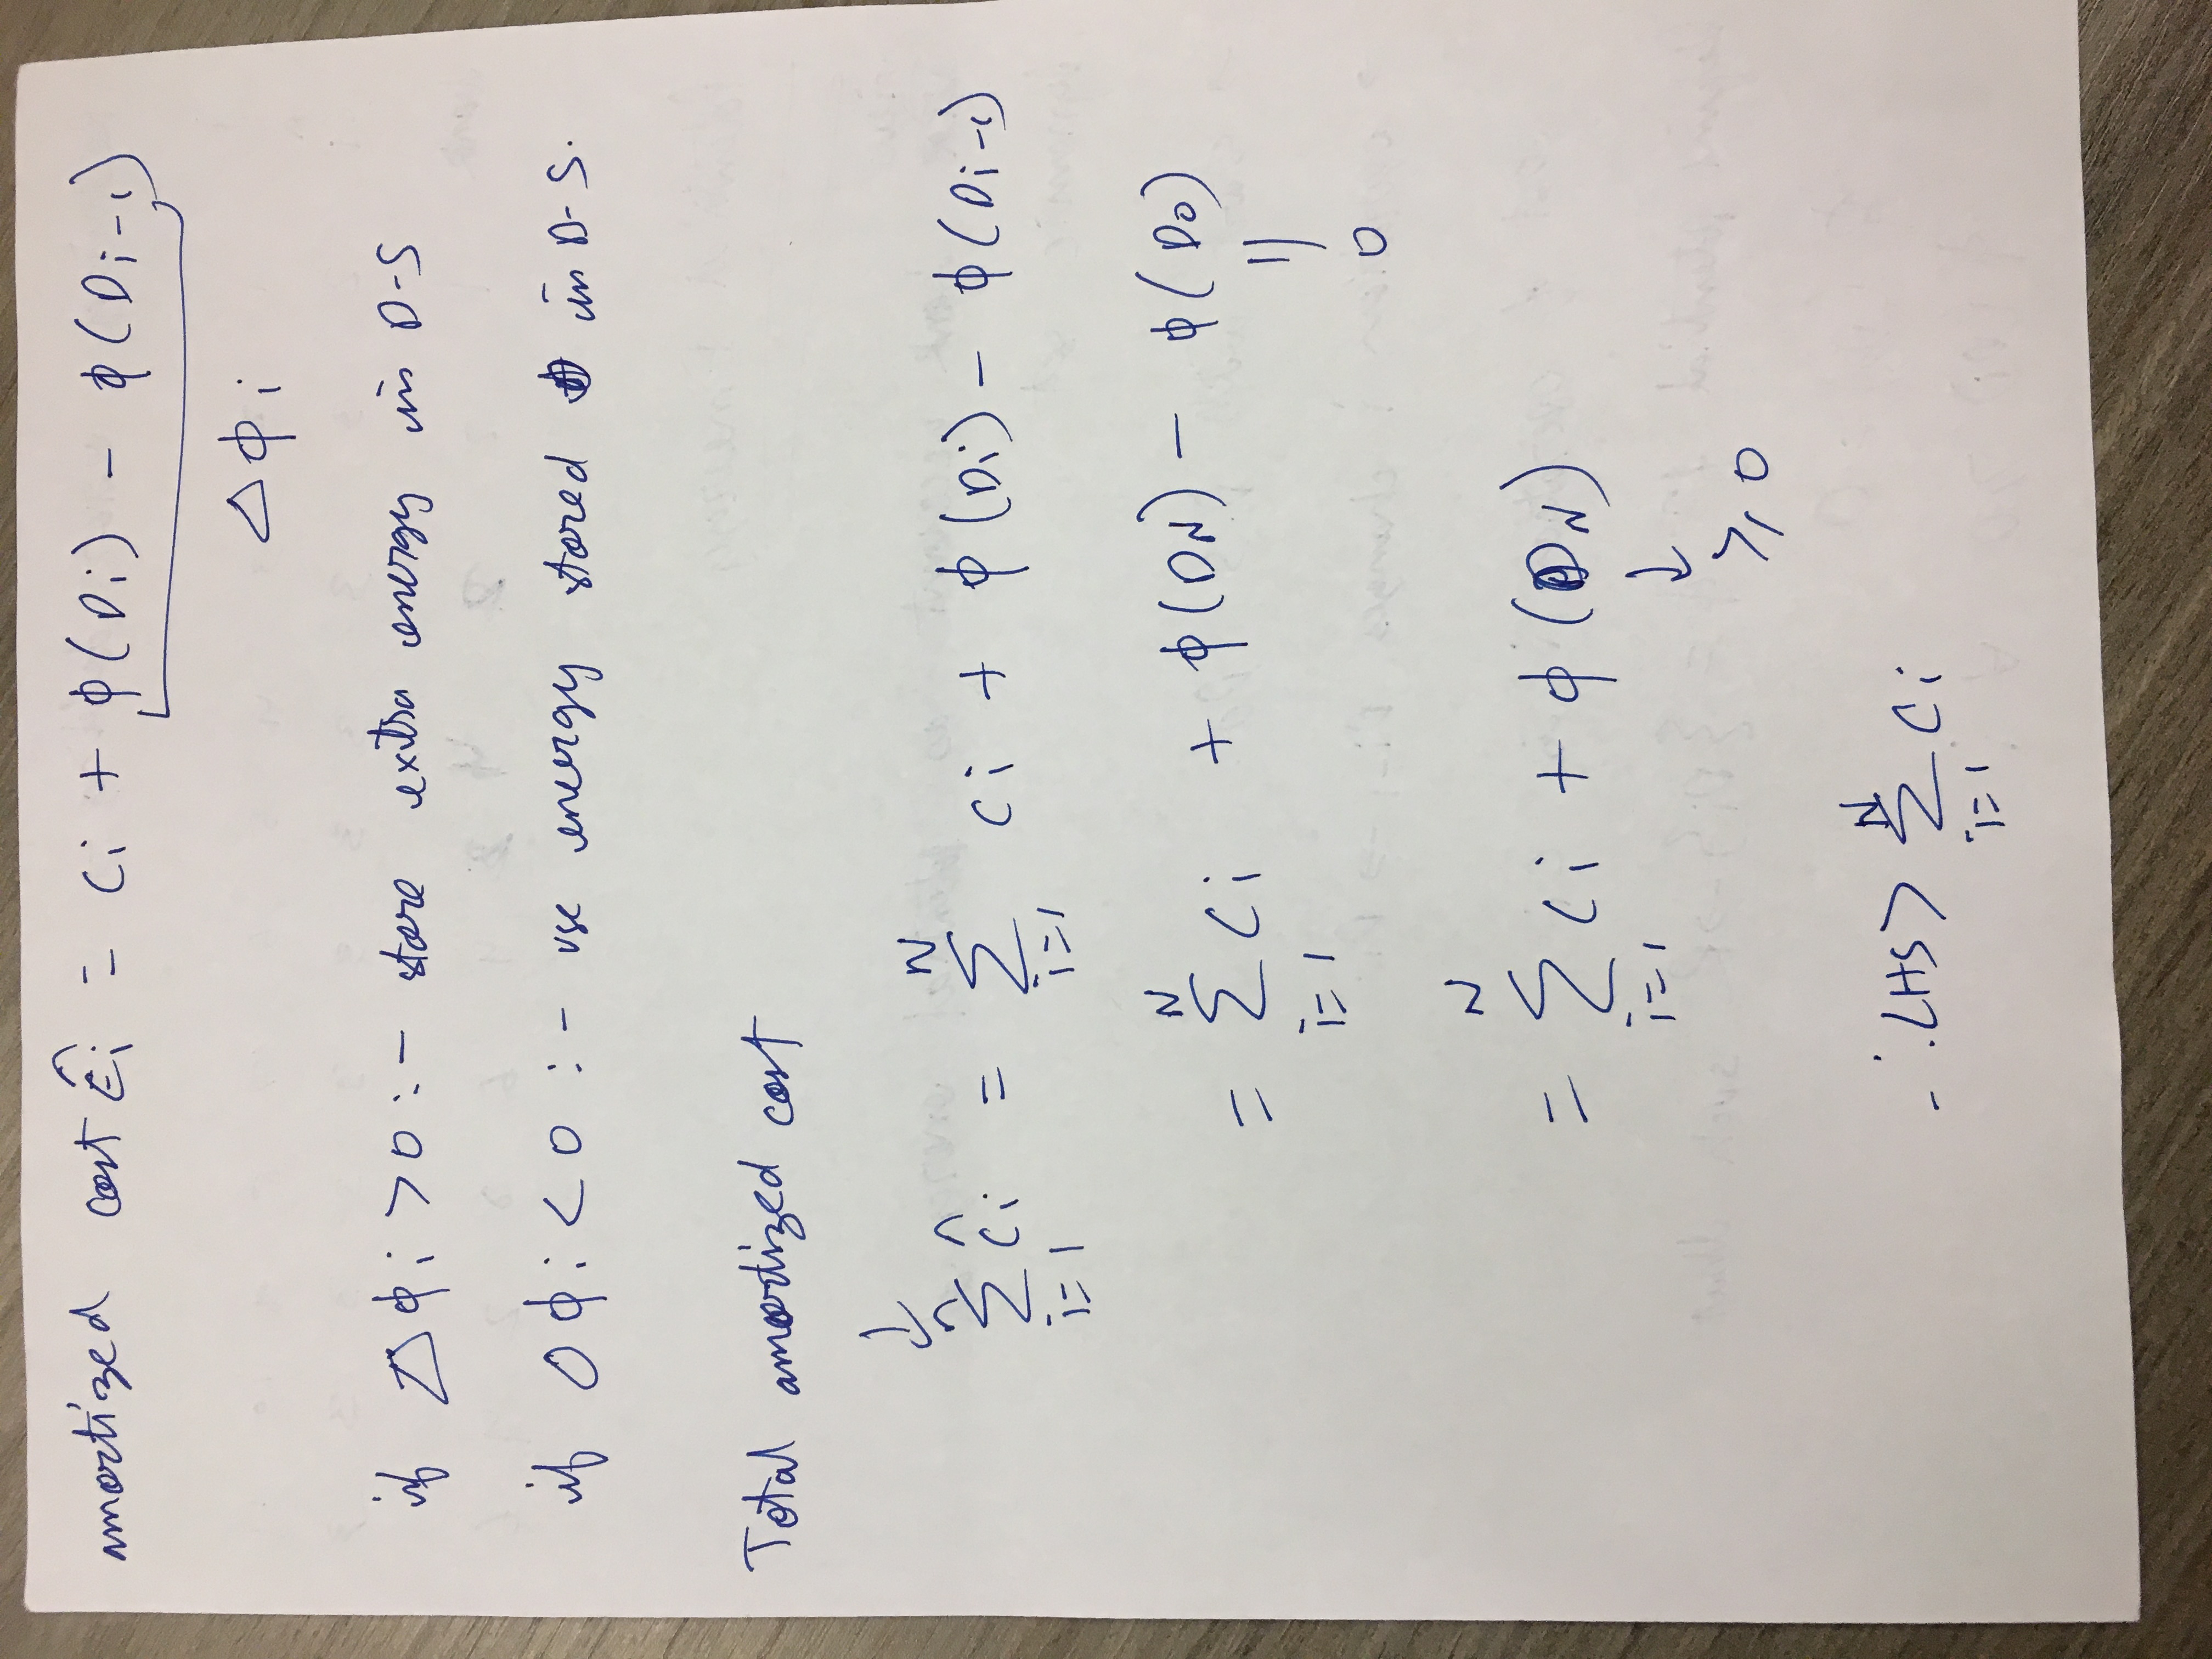 amortized cost ĉi = ci + φ(Di) - φ(Di-1)
Δφi
if Δφi > 0 :- store extra energy in D-S
if Δφi < 0 :- use energy stored in D-S.
Total amortized cost
↓
n N
Σ ĉi = Σ ci + φ(Di) - φ(Di-1)
i=1 i=1
N
= Σ ci + φ(DN) - φ(D0)
i=1 ||
0
N
= Σ ci + φ(DN)
i=1 ↓
≥ 0
N
∴ LHS > Σ ci
i=1